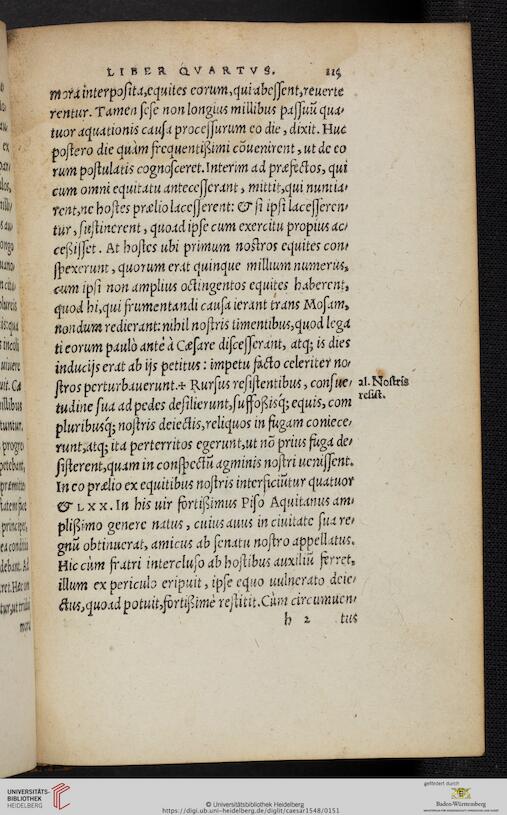 LIBER QVARTVS. 115
mora interposita, equites eorum, qui abessent, reuerte
rentur. Tamen sese non longius millibus passuũ qua-
tuor aquationis causa processurum eo die, dixit. Huc
postero die quàm frequentißimi cõuenirent, ut de eo
rum postulatis cognosceret. Interim ad præfectos, qui
cum omni equitatu antecesserant, mittit, qui nuntia-
rent, ne hostes prælio lacesserent: & si ipsi lacesseren-
tur, sustinerent, quoad ipse cum exercitu propius ac-
ceßisset. At hostes ubi primum nostros equites con-
spexerunt, quorum erat quinque millium numerus,
cum ipsi non amplius octingentos equites haberent,
quod hi, qui frumentandi causa ierant trans Mosam,
nondum redierant: nihil nostris timentibus, quod lega
ti eorum paulò antè à Cæsare discesserant, atq; is dies
inducijs erat ab ijs petitus: impetu facto celeriter no-
stros perturbauerunt.+ Rursus resistentibus, consue-
tudine sua ad pedes desilierunt, suffoßisq; equis, com
pluribusq; nostris deiectis, reliquos in fugam coniece-
runt, atq; ita perterritos egerunt, ut nõ prius fuga de-
sisterent, quam in conspectũ agminis nostri uenissent.
In eo prælio ex equitibus nostris interficiũtur quatuor
& LXX. In his uir fortißimus Piso Aquitanus am-
plißimo genere natus, cuius auus in ciuitate sua re-
gnũ obtinuerat, amicus ab senatu nostro appellatus.
Hic cùm fratri intercluso ab hostibus auxiliũ ferret,
illum ex periculo eripuit, ipse equo uulnerato deie-
ctus, quoad potuit, fortißimè restitit. Cùm circumuen-
h 2 tus
al. Nostris
resist.
UNIVERSITÄTS-
BIBLIOTHEK
HEIDELBERG
© Universitätsbibliothek Heidelberg
https://digi.ub.uni-heidelberg.de/diglit/caesar1548/0151
gefördert durch
Baden-Württemberg